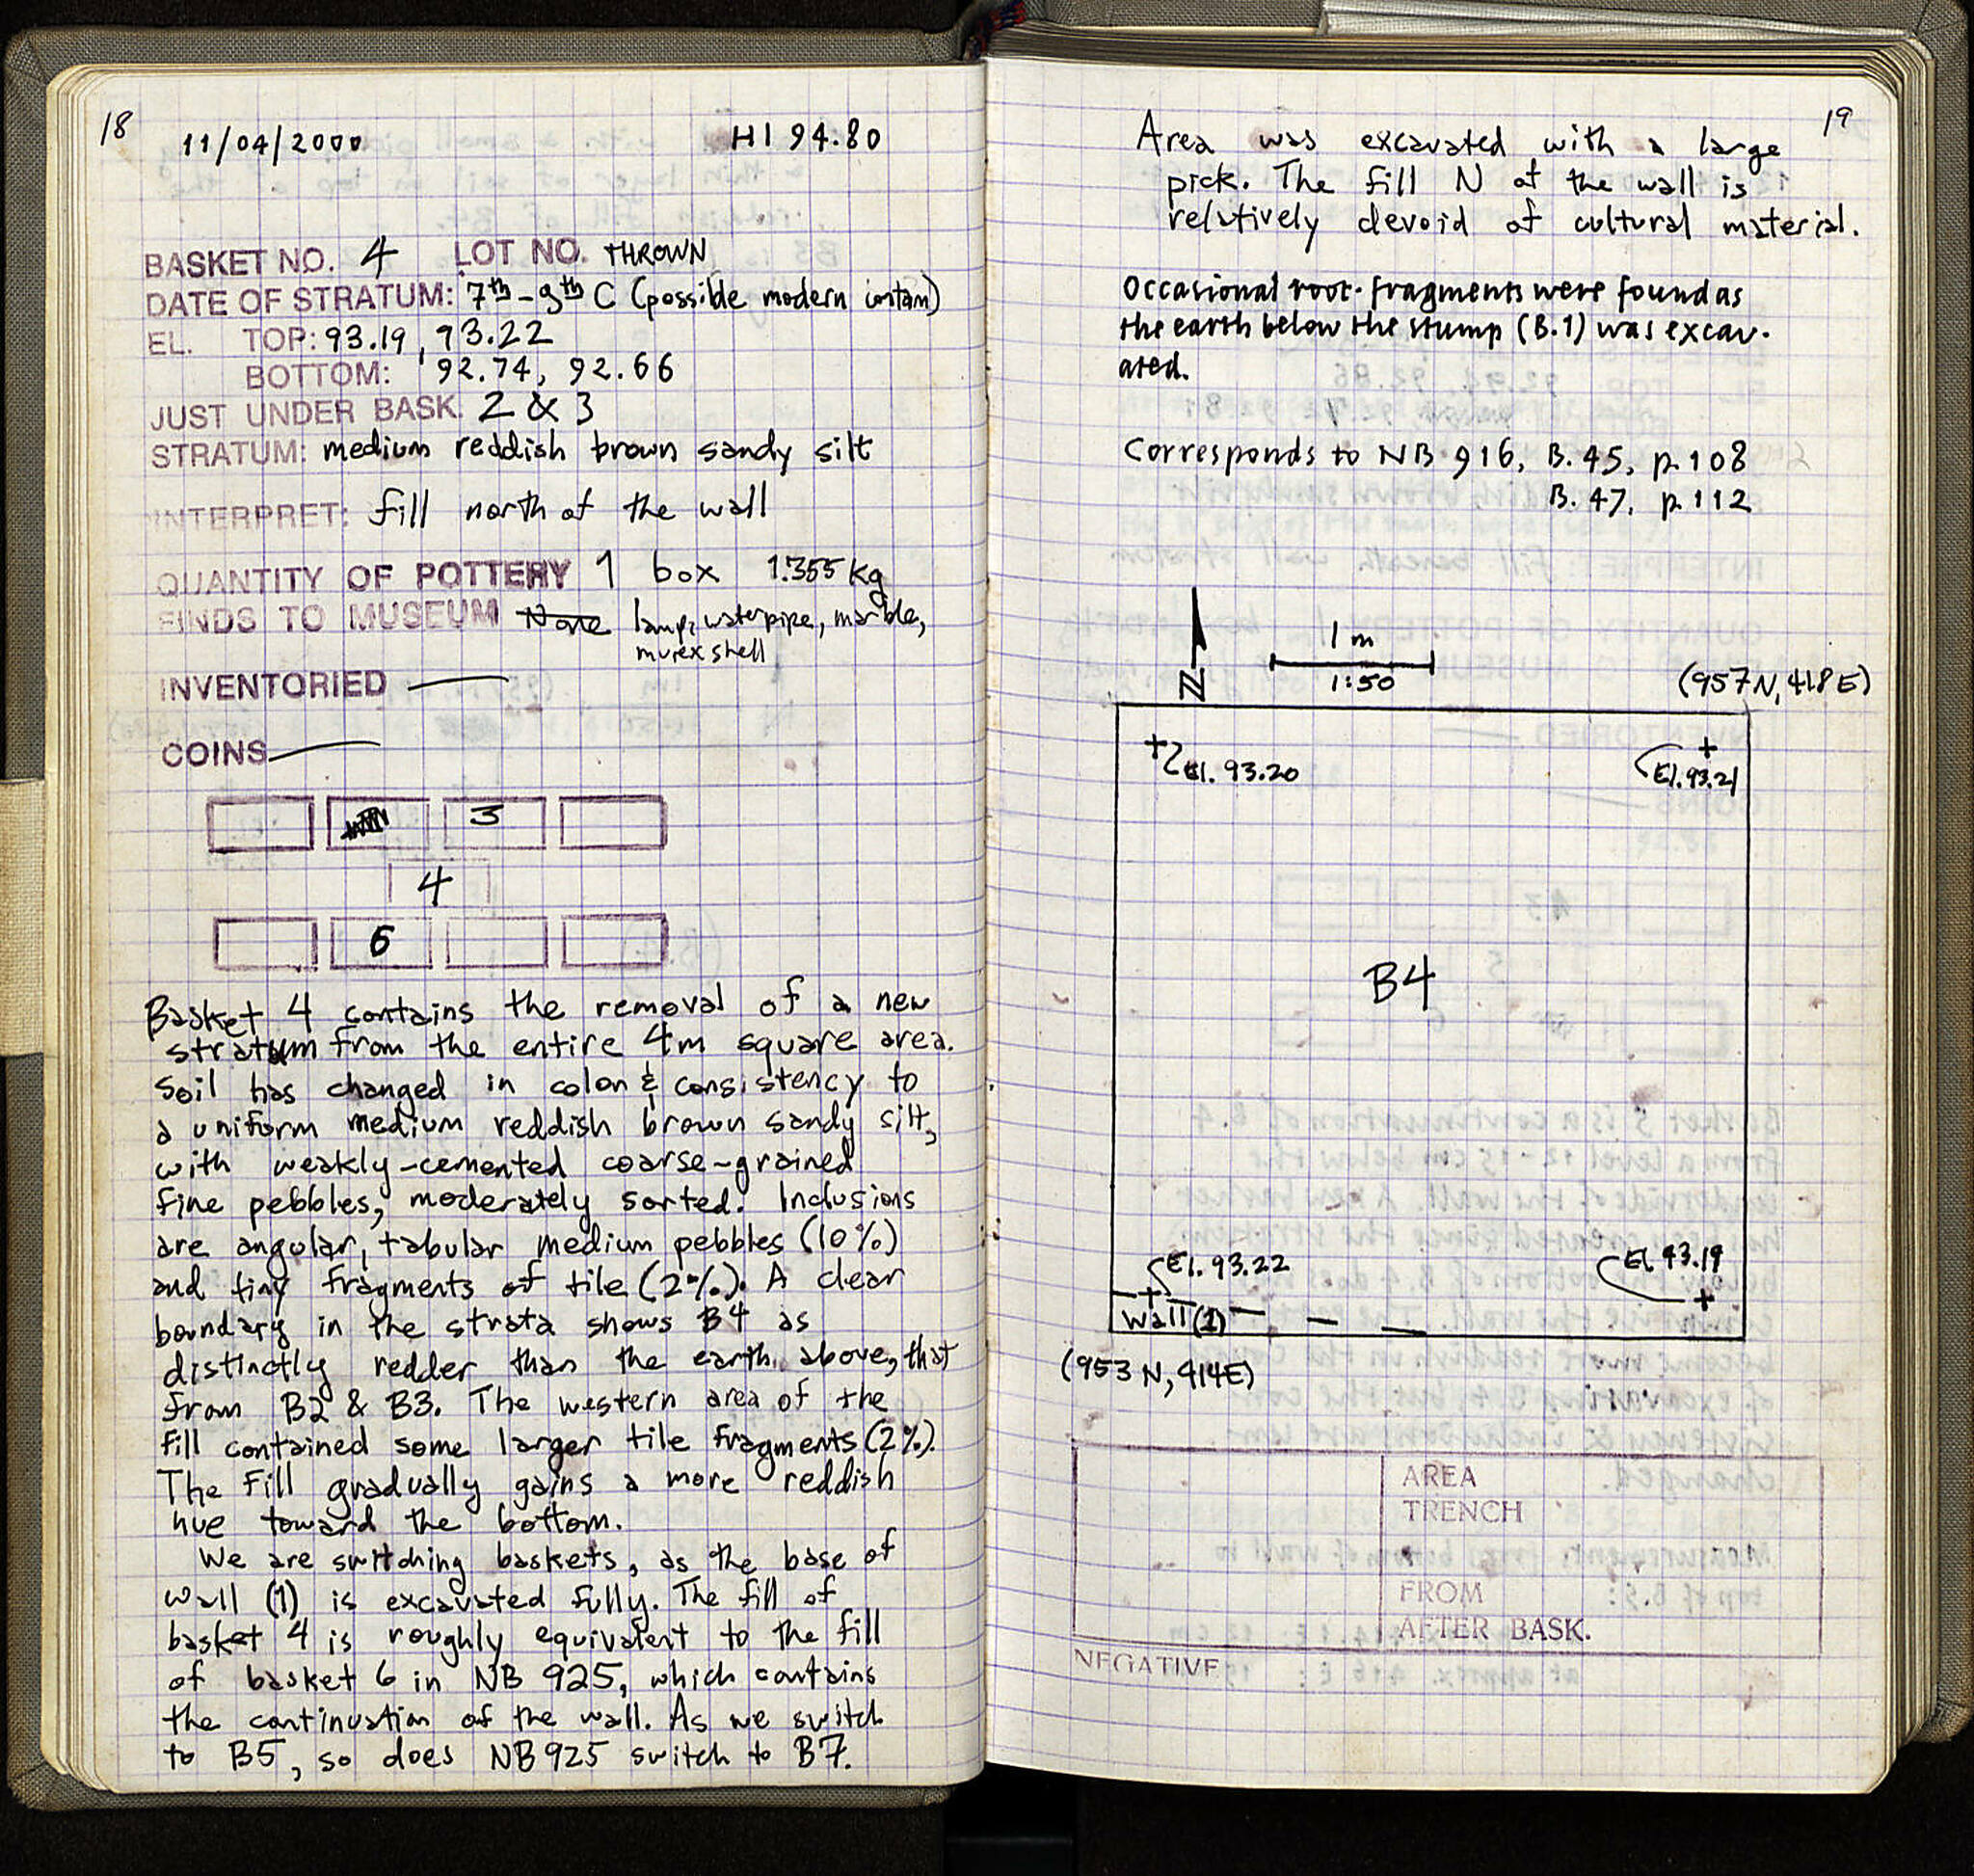 18
11/04/2000 HI 94.80
BASKET NO. 4 LOT NO. THROWN
DATE OF STRATUM: 7th-9th C (possible modern contam)
EL. TOP: 93.19, 93.22
BOTTOM: 92.74, 92.66
JUST UNDER BASK. 2 & 3
STRATUM: medium reddish brown sandy silt
INTERPRET: fill north of the wall
QUANTITY OF POTTERY 1 box 1.355 kg
FINDS TO MUSEUM None lamp, waterpipe, marble,
murex shell
INVENTORIED —
COINS —
3
4
5
Basket 4 contains the removal of a new
stratum from the entire 4m square area.
Soil has changed in color & consistency to
a uniform medium reddish brown sandy silt,
with weakly-cemented coarse-grained
fine pebbles, moderately sorted. Inclusions
are angular, tabular medium pebbles (10%)
and tiny fragments of tile (2%). A clear
boundary in the strata shows B4 as
distinctly redder than the earth above, that
from B2 & B3. The western area of the
fill contained some larger tile fragments (2%).
The fill gradually gains a more reddish
hue toward the bottom.
We are switching baskets, as the base of
wall (1) is excavated fully. The fill of
basket 4 is roughly equivalent to the fill
of basket 6 in NB 925, which contains
the continuation of the wall. As we switch
to B5, so does NB 925 switch to B7.
19
Area was excavated with a large
pick. The fill N of the wall is
relatively devoid of cultural material.
Occasional root-fragments were found as
the earth below the stump (B.1) was excav-
ated.
Corresponds to NB 916, B. 45, p. 108
B. 47, p. 112
N
1 m
1:50
(957N, 418E)
El. 93.20
El. 93.21
B4
El. 93.22
El. 93.19
Wall (1)
(953 N, 414E)
AREA
TRENCH
FROM
AFTER BASK.
NEGATIVE